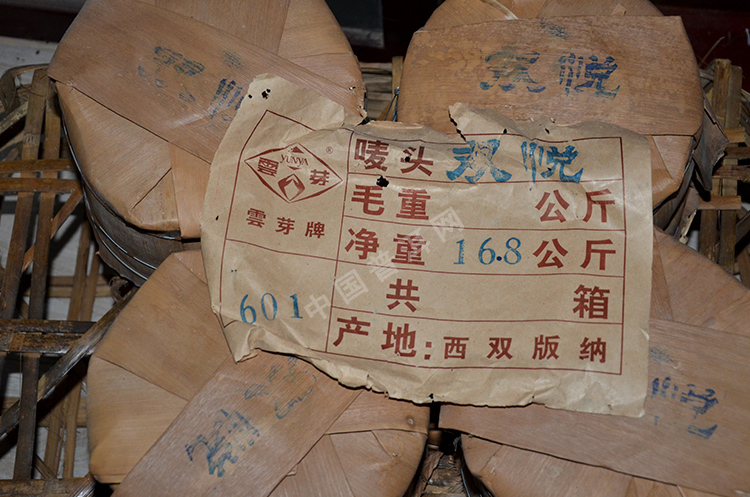 YUNYA
雲芽
®
雲芽牌
601
唛头 双悦
毛重 公斤
净重 16.8 公斤
共 箱
产地:西双版纳
中国普洱网
悦